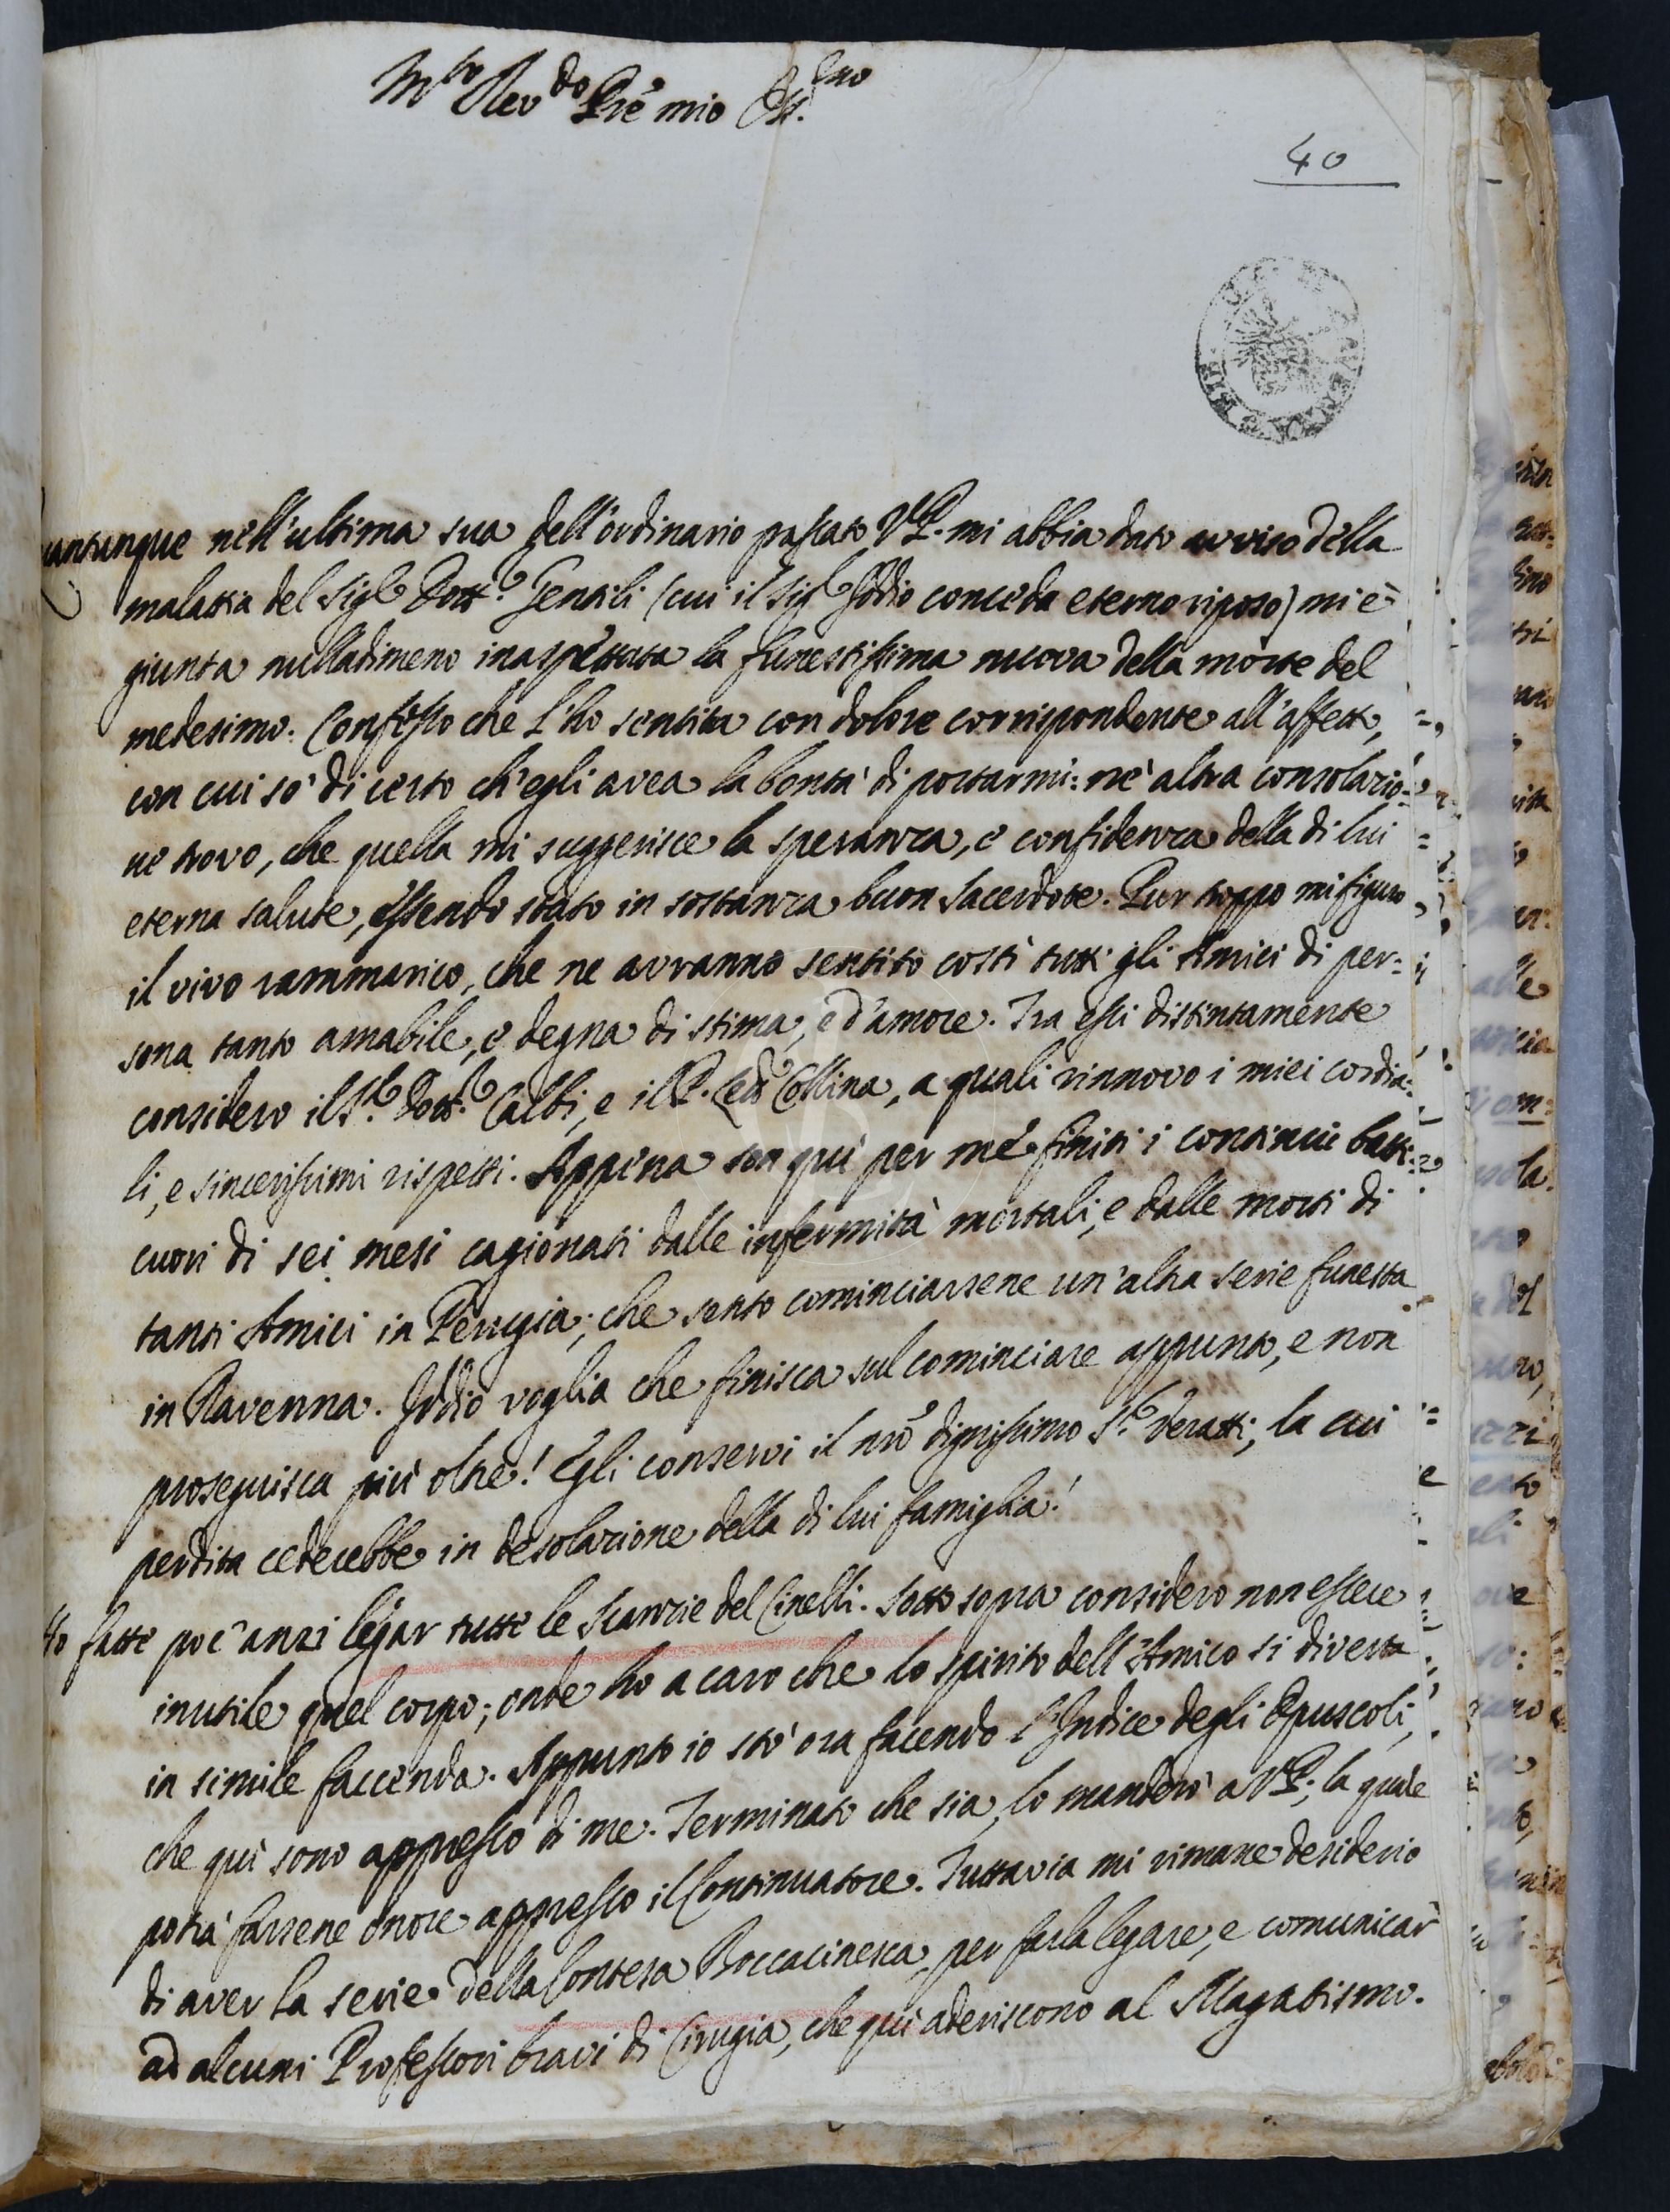 Mto Revdo Pre mio Oss.mo
40
Quantunque nell'ultima sua dell'ordinario passato V.P. mi abbia dato avviso della
malatia del Sigr Dottr Gentili (cui il Sigr Iddio conceda eterno riposo) mi è
giunta nulladimeno inaspettata la funestissima nuova della morte del
medesimo. Confesso che l'ho sentita con dolore corrispondente all'affetto,
con cui sò di certo ch'egli avea la bontà di portarmi: nè altra consolazio=
ne trovo, che quella mi suggerisce la speranza, e confidenza della di lui
eterna salute, essendo stato in sostanza buon Sacerdote. Pur troppo mi figuro
il vivo rammarico, che ne avranno sentito costì tutti gli Amici di per=
sona tanto amabile, e degna di stima, e d'amore. Tra essi distintamente
considero il Sr Dottr Calbi, e il P. Collina, a quali rinnovo i miei cordia=
li, e sincerissimi rispetti. Appena son quì per me finiti i continui batti=
cuori di sei mesi cagionati dalle infermità mortali, e dalle morti di
tanti Amici in Perugia; che sento cominciarsene un'altra serie funesta
in Ravenna. Iddio voglia che finisca sul cominciare appunto, e non
proseguisca più oltre! Egli conservi il nro dignissimo Sr Veratti, la cui
perdita cederebbe in desolazione della di lui famiglia!
Ho fatte poc'anzi legar tutte le Scanzie del Cinelli. Sotto sopra considero non essere
inutile quel corpo; onde ho a caro che lo spirito dell'Amico si diverta
in simile faccenda. Appunto io stò ora facendo l'Indice degli Opuscoli,
che quì sono appresso di me. Terminato che sia, lo manderò a V.P., la quale
potrà farsene onore appresso il Continuatore. Tuttavia mi rimane desiderio
di aver la serie della Contesa Boccacinesca, per farla legare, e comunicar
ad alcuni Professori bravi di Cirugia, che quì aderiscono al Magatismo.